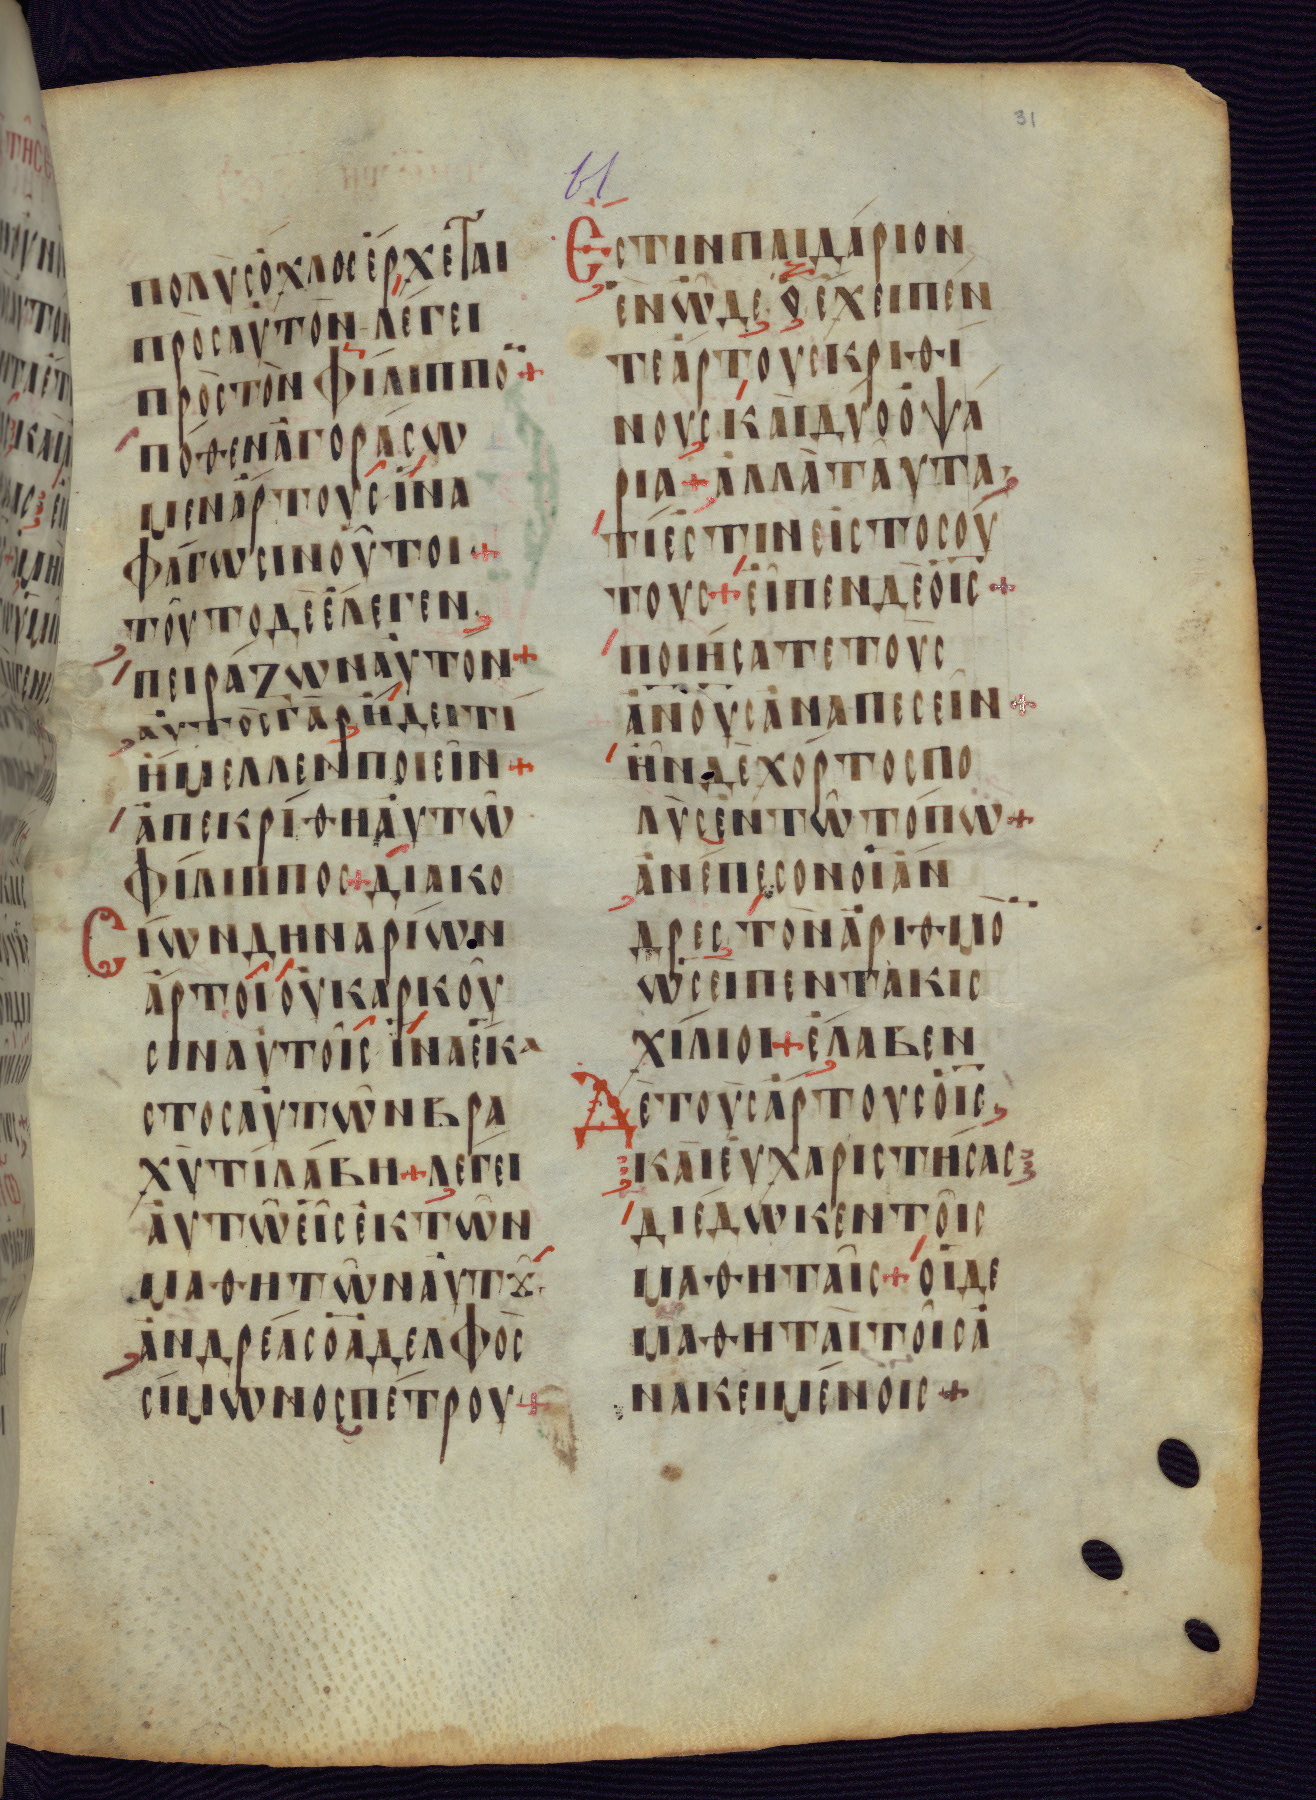 31
61
πολὺσὄχλοσἔρχεται
πρὸσαὐτὸν λέγει
πρὸστὸν Φίλιππο̄ +
πόθεναγοράσω
μενἄρτουσ ἵνα
φάγωσινοὗτοι +
τοῦτοδὲἔλεγεν
πειράζωναὐτόν +
αὐτὸσγὰρἤδειτί
ἤμελλενποιεῖν +
ἀπεκρίθηαὐτῶ
Φίλιπποσ + διακο
Σίωνδηναρίων
ἄρτοιουκαρκοῦ
σιναὐτοῖσ ἵναἕκα
στοσαὐτῶνβρα
χύτιλάβη + λέγει
αὐτῶεἷσἐκτῶν
μαθητῶναὐτȣ
ἀνδρέασὁἀδελφὸσ
σίμωνοσπέτρου +
Ἔστινπαιδάριον
ἐνῶδε ὃἔχειπέν
τεἄρτουσκριθί
νουσ καὶδύοὀψά
ρια + ἀλλὰταῦτα
τίἐστινεἰστοσού
τουσ + εἶπενδὲὁισ̄ +
ποιήσατετοὺσ
ᾱν̄ο̄ῡσ̄ἀναπεσεῖν +
ἦνδὲχόρτοσπο
λὺσἐντῶτόπω +
ἀνέπεσονοἱάν
δρεσ τὸνἀριθμὸ̄
ὡσεὶπεντακισ
χίλιοι + ἔλαβεν
Δὲτοὺσἄρτουσὁισ̄
καὶεὐχαριστήσασ
διέδωκεντοῖσ
μαθηταῖσ + οἱδε
μαθηταὶτοῖσἀ
νακειμένοισ +